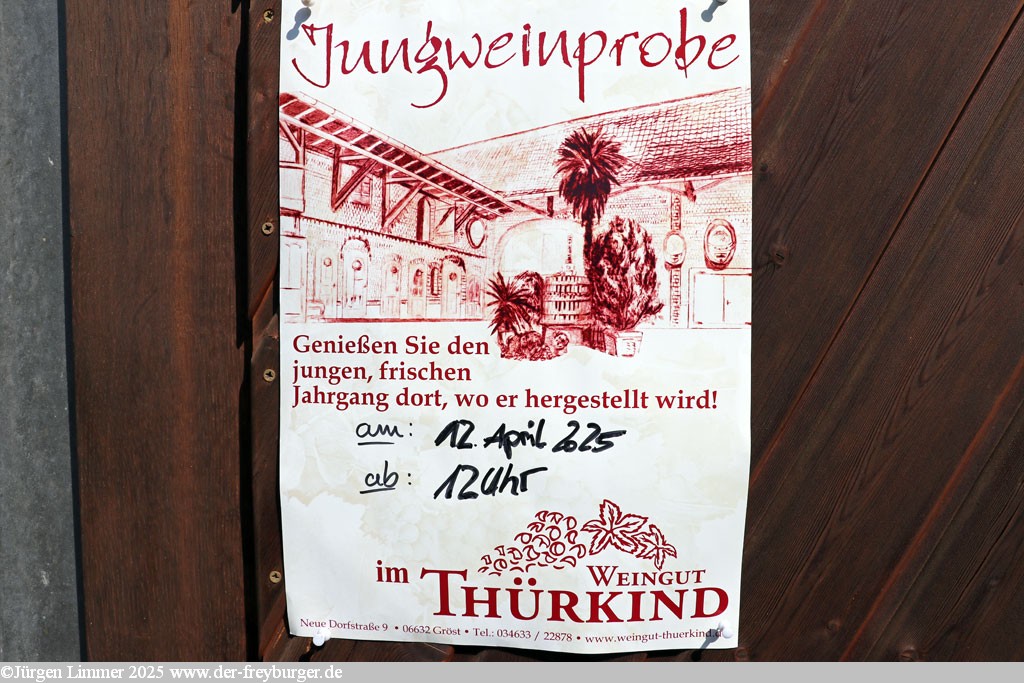 Jungweinprobe
Genießen Sie den
jungen, frischen
Jahrgang dort, wo er hergestellt wird!
am: 12. April 2025
ab: 12 Uhr
im WEINGUT
THÜRKIND
Neue Dorfstraße 9 • 06632 Gröst • Tel.: 034633 / 22878 • www.weingut-thuerkind.de
©Jürgen Limmer 2025 www.der-freyburger.de